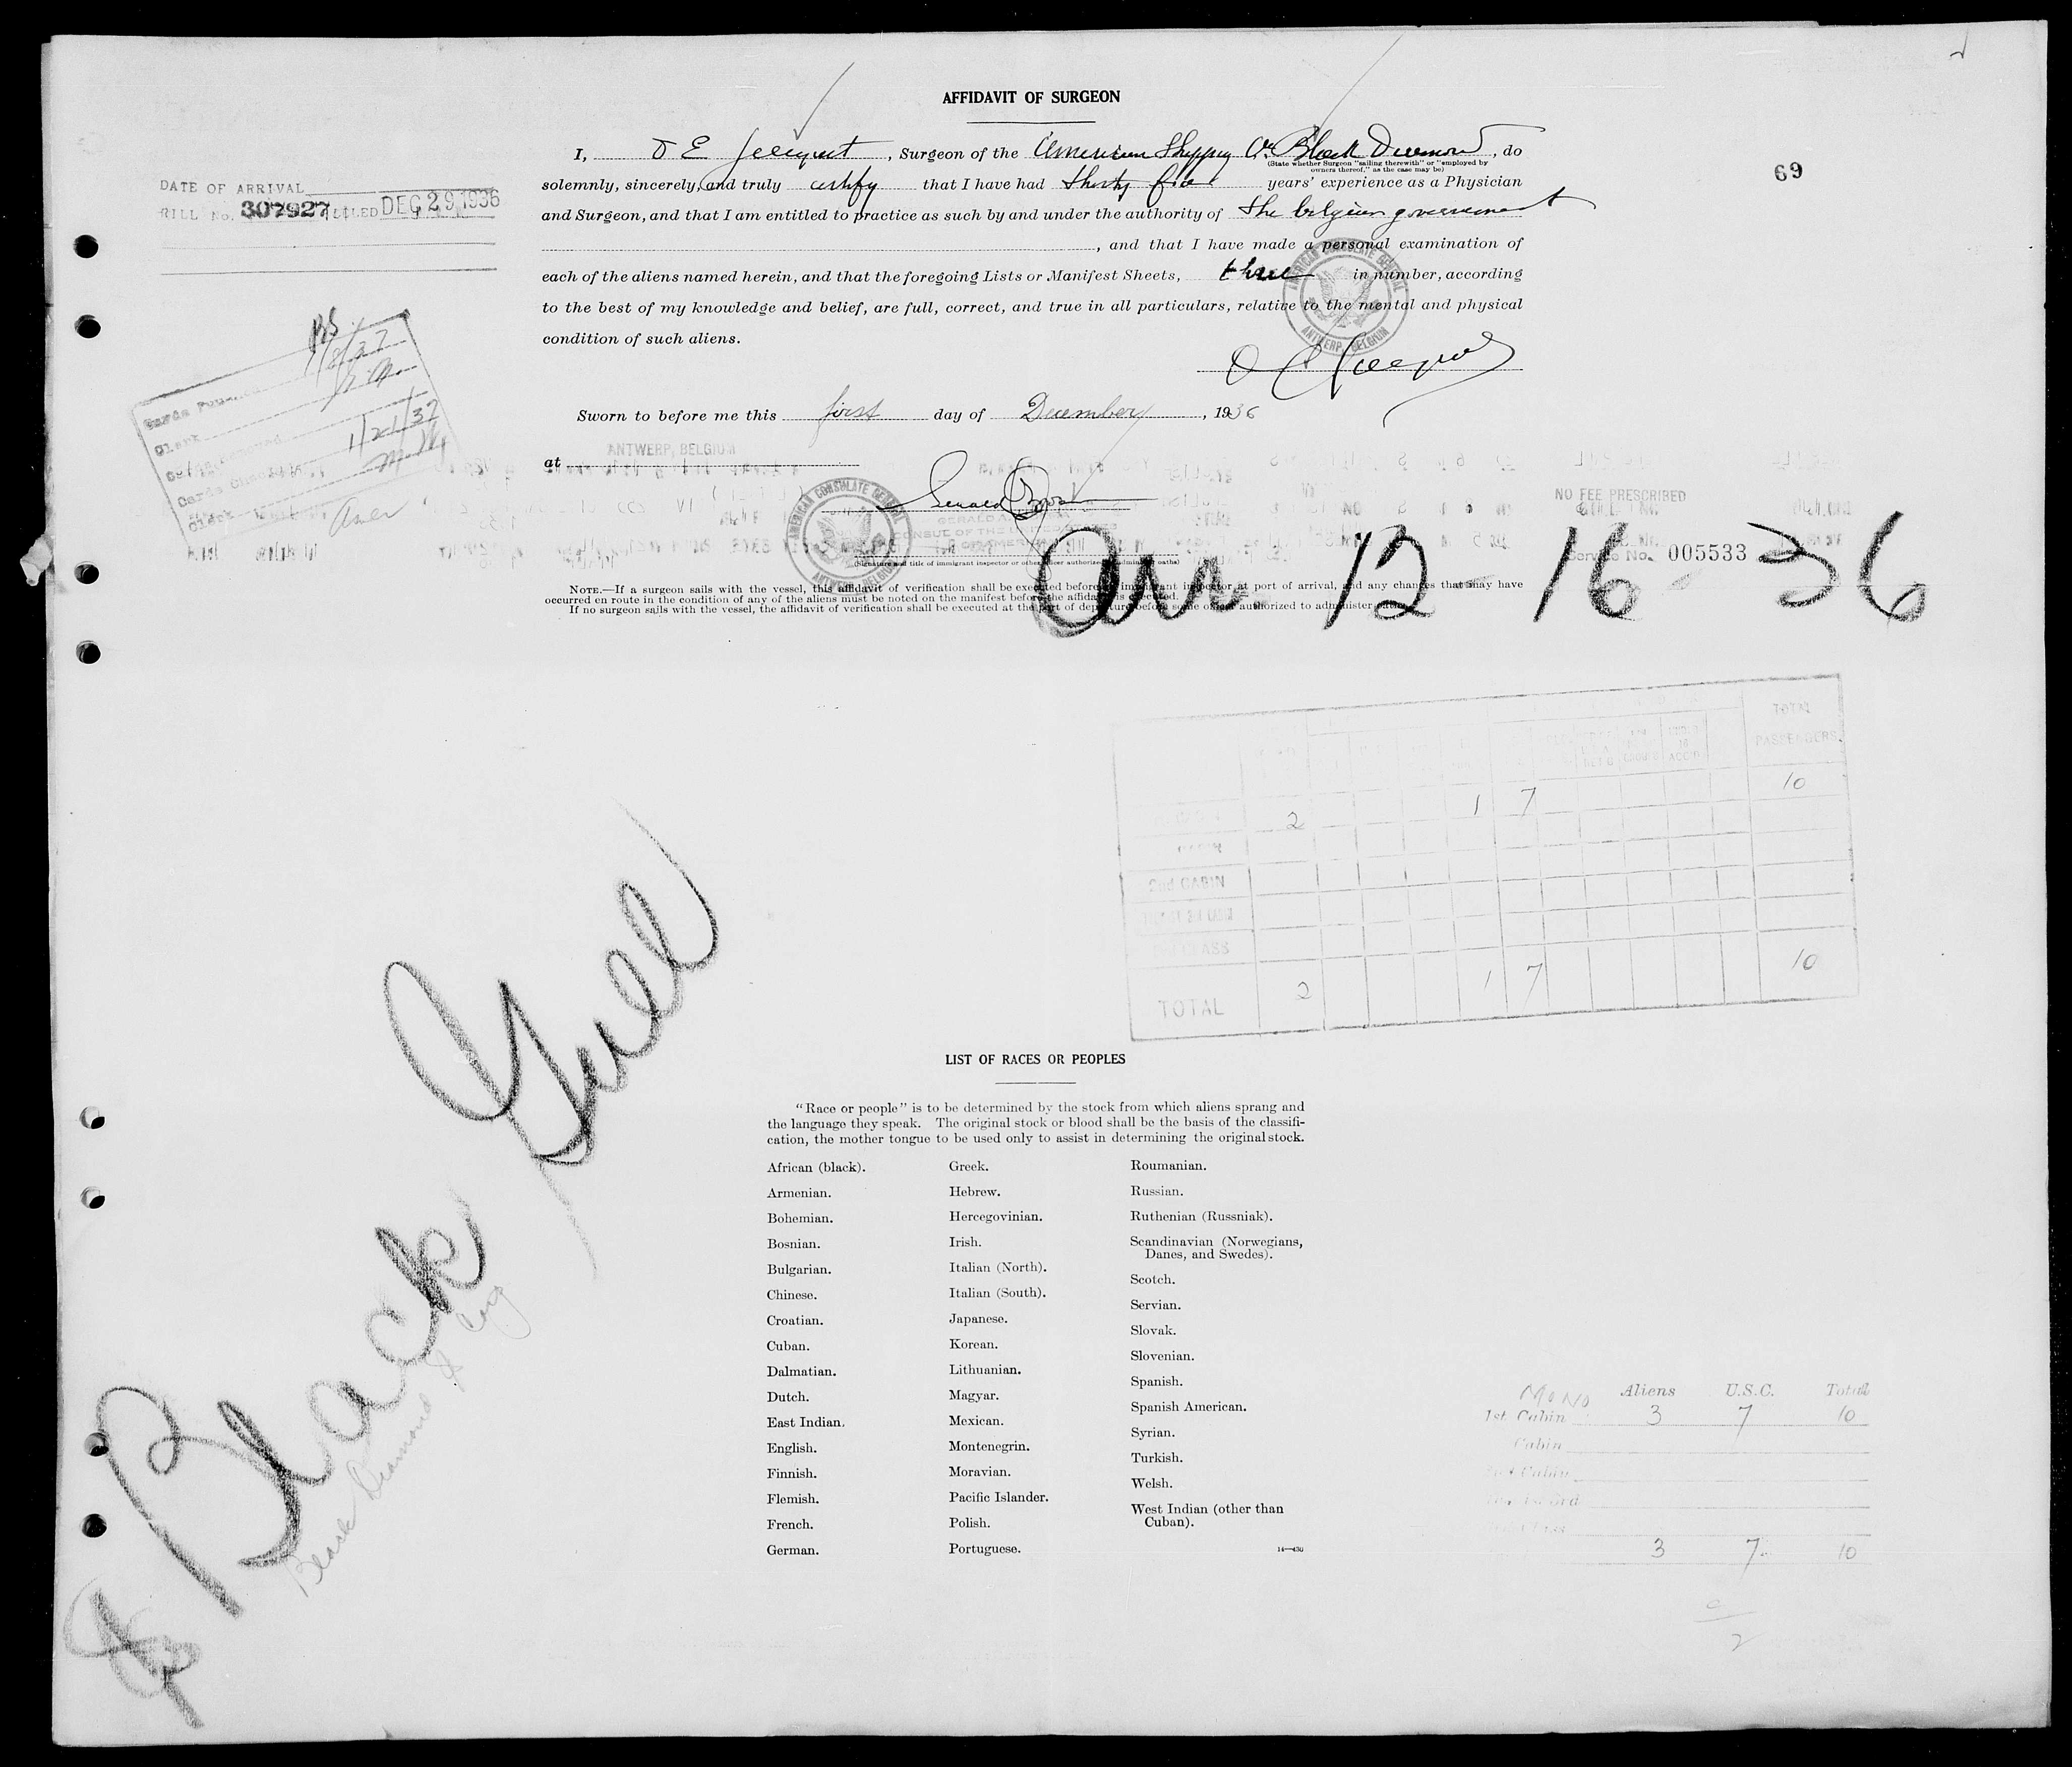 AFFIDAVIT OF SURGEON
I, , Surgeon of the American Shipping Co. Black Diamond, do
(State whether Surgeon "sailing therewith" or "employed by
owners thereof," as the case may be)
solemnly, sincerely, and truly certify that I have had thirty five years' experience as a Physician
and Surgeon, and that I am entitled to practice as such by and under the authority of the belgian government
, and that I have made a personal examination of
each of the aliens named herein, and that the foregoing Lists or Manifest Sheets, three in number, according
to the best of my knowledge and belief, are full, correct, and true in all particulars, relative to the mental and physical
condition of such aliens.
AMERICAN CONSULATE GENERAL
ANTWERP, BELGIUM
Sworn to before me this first day of December, 1936
at ANTWERP, BELGIUM
AMERICAN CONSULATE GENERAL
ANTWERP, BELGIUM
(Signature and title of immigrant inspector or other officer authorized to administer oaths)
NOTE.—If a surgeon sails with the vessel, this affidavit of verification shall be executed before immigrant inspector at port of arrival, and any changes that may have
occurred en route in the condition of any of the aliens must be noted on the manifest before the affidavit is executed.
If no surgeon sails with the vessel, the affidavit of verification shall be executed at the port of departure before some officer authorized to administer
69
DATE OF ARRIVAL
BILL No. 307927 FILED DEC 29 1936
1/8/37
Clerk
1/21/37
Clerk
NO FEE PRESCRIBED
Service No. 005533
Arr 12 16 36
TOTAL
PASSENGERS
2 1 7 10
2nd CABIN
TOTAL 2 1 7 10
Black Gull
Black Diamond
LIST OF RACES OR PEOPLES
"Race or people" is to be determined by the stock from which aliens sprang and
the language they speak. The original stock or blood shall be the basis of the classifi-
cation, the mother tongue to be used only to assist in determining the original stock.
African (black).
Armenian.
Bohemian.
Bosnian.
Bulgarian.
Chinese.
Croatian.
Cuban.
Dalmatian.
Dutch.
East Indian.
English.
Finnish.
Flemish.
French.
German.
Greek.
Hebrew.
Hercegovinian.
Irish.
Italian (North).
Italian (South).
Japanese.
Korean.
Lithuanian.
Magyar.
Mexican.
Montenegrin.
Moravian.
Pacific Islander.
Polish.
Portuguese.
Roumanian.
Russian.
Ruthenian (Russniak).
Scandinavian (Norwegians,
Danes, and Swedes).
Scotch.
Servian.
Slovak.
Slovenian.
Spanish.
Spanish American.
Syrian.
Turkish.
Welsh.
West Indian (other than
Cuban).
14—430
Aliens U.S.C. Total
1st Cabin 3 7 10
Cabin
3 7 10